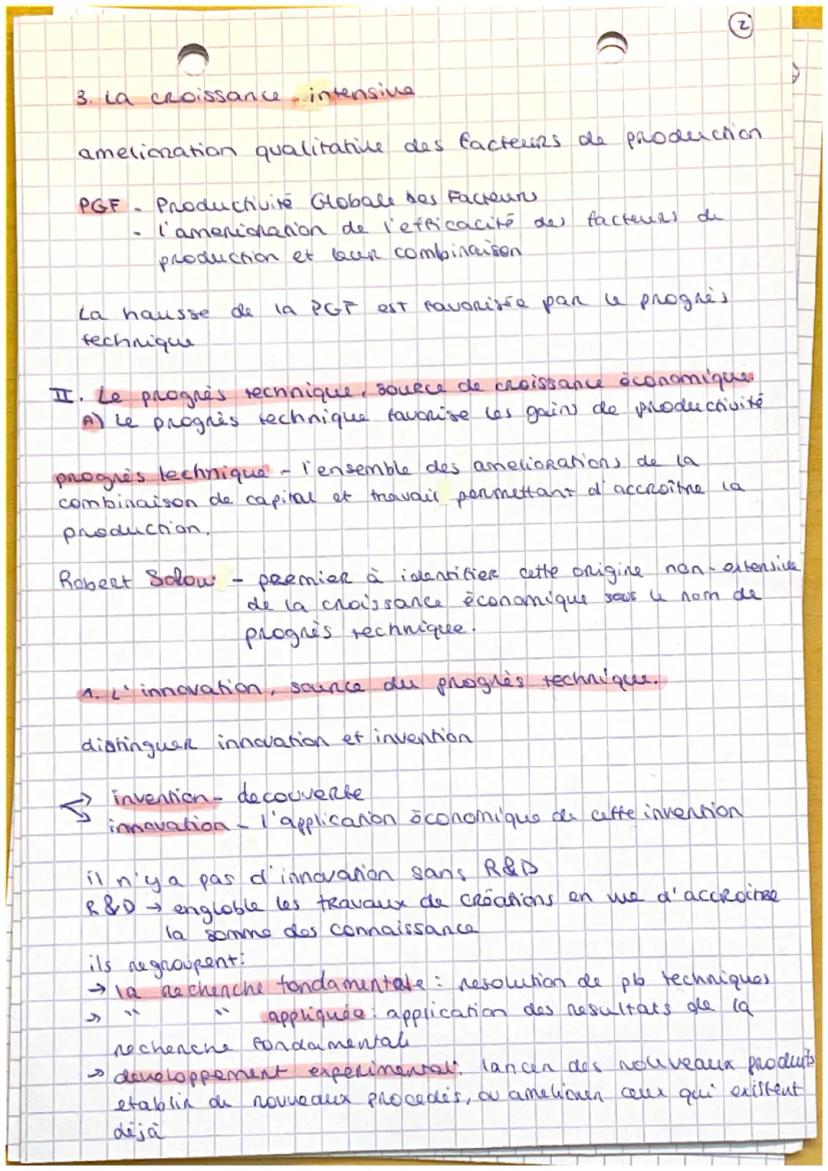 2
3. La croissance intensive
amelioration qualitative des facteurs de production
PGF - Productivité Globale des Facteurs
- l'amerioration de l'efficacité des facteurs de
production et leur combinaison
La hausse de la PGF est favorisée par le progrès
technique
II. Le progrès technique, source de croissance économique.
A) Le progrès technique favorise les gains de productivité
progrès technique - l'ensemble des ameliorations de la
combinaison de capital et travail permettant d'accroître la
production.
Robert Solow - premier à identifier cette origine non-extensive
de la croissance économique sous le nom de
progrès technique.
1. L'innovation, source du progrès technique.
distinguer innovation et invention
invention - decouverte
innovation - l'application économique de cette invention
il n'y a pas d'innovation sans R&D
R&D → englobe les travaux de créations en vue d'accroitre
la somme des connaissance
ils regroupent:
→ la recherche fondamentale : resolution de pb techniques
→ " " appliquée : application des resultats de la
recherche fondamentale
→ developpement experimental: lancer des nouveaux produits
etablir de nouveaux procedés, ou ameliorer ceux qui existent
déjà